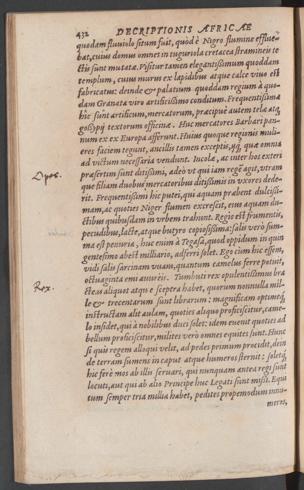 432 DECRIPTIONIS AFRICAE
quodam fluviolo situm fuit, quòd è Nigro flumine efflue-
bat, cuius domus omnes in tuguriola cretacea stramineis te-
ctis sunt mutatæ. Visitur tamen elegantissimum quoddam
templum, cuius murus ex lapidibus atque calce viva est
fabricatus: deinde & palatium quoddam regium à quo-
dam Granata viro artificiosissimo conditum. Frequentissimæ
hic sunt artificum, mercatorum, præcipuè autem telæ atq́;
gossypij textorum officinæ. Huc mercatores Barbari pan-
num ex Europa afferunt. Huius quoque regionis muli-
eres faciem tegunt, ancillis tamen exceptis, quæ omnia
ad victum necessaria vendunt. Incolæ, ac inter hos exteri
Opes. præsertim sunt ditissimi, adeò vt qui iam rex est, vtram
que filiam duobus mercatoribus ditissimis in vxores dede-
rit. Frequentissimi hîc putei, qui aquam præbent dulcissi-
mam, ac quoties Niger flumen excrescit, eius aquam du-
ctibus quibusdam in vrbem trahunt. Regio est frumentis,
pecudibus, lacte, atque butyro copiosissima: salis verò sum-
ma est penuria, huc enim à Tegasa, quod oppidum in quin
gentesimo abest milliario, adferri solet. Ego cùm hîc essem,
vidi salis sarcinam vnam, quantum camelus ferre potuit,
octuaginta emi aureis. Tumbuti rex opulentissimus bra
Rex. cteas aliquot atque sceptra habet, quorum nonnulla mil-
le & trecentarum sunt librarum: magnificam optimeq́;
instructam alit aulam, quoties aliquo proficiscitur, came-
lo insidet, qui à nobilibus duci solet: idem euenit quoties ad
bellum proficiscitur, milites verò omnes equites sunt. Hunc
si quis regem alloqui velit, ad pedes primum procidit, dein
de terram sumens in caput atque humeros sternit: soletq́;
hic ferè mos ab illis seruari, qui nunquam antea regi sunt
locuti, aut qui ab alio Principe huc Legati sunt missi. Equi
tum semper tria millia habet, pedites propemodum innu-
meros,